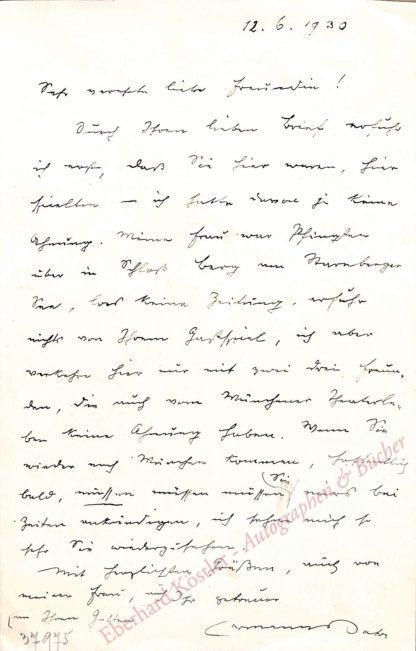 12. 6. 1930
Sehr verehrte liebe Freundin!
Durch Ihren lieben Brief erfuhr
ich erst, daß Sie hier waren, hier
spielten – ich hatte davon ja keine
Ahnung. Meine Frau war Pfingsten
über in Schloß Berg am Starnberger
See, las keine Zeitung, erfuhr
nichts von Ihrem Gastspiel, ich aber
verkehre hier nur mit zwei drei Freun-
den, die auch vom Münchener Theaterle-
ben keine Ahnung haben. Wenn Sie
wieder nach München kommen, hoffentlich
bald, müssen müssen müssen Sie uns bei
Zeiten ankündigen, ich sehne mich so
sehr Sie wiederzusehen.
Mit herzlichsten Grüßen, auch von
meiner Frau, Ihr getreuer
Hermann Bahr
an Ihren Gatten
37975
Eberhard Köstler - Autographen & Bücher